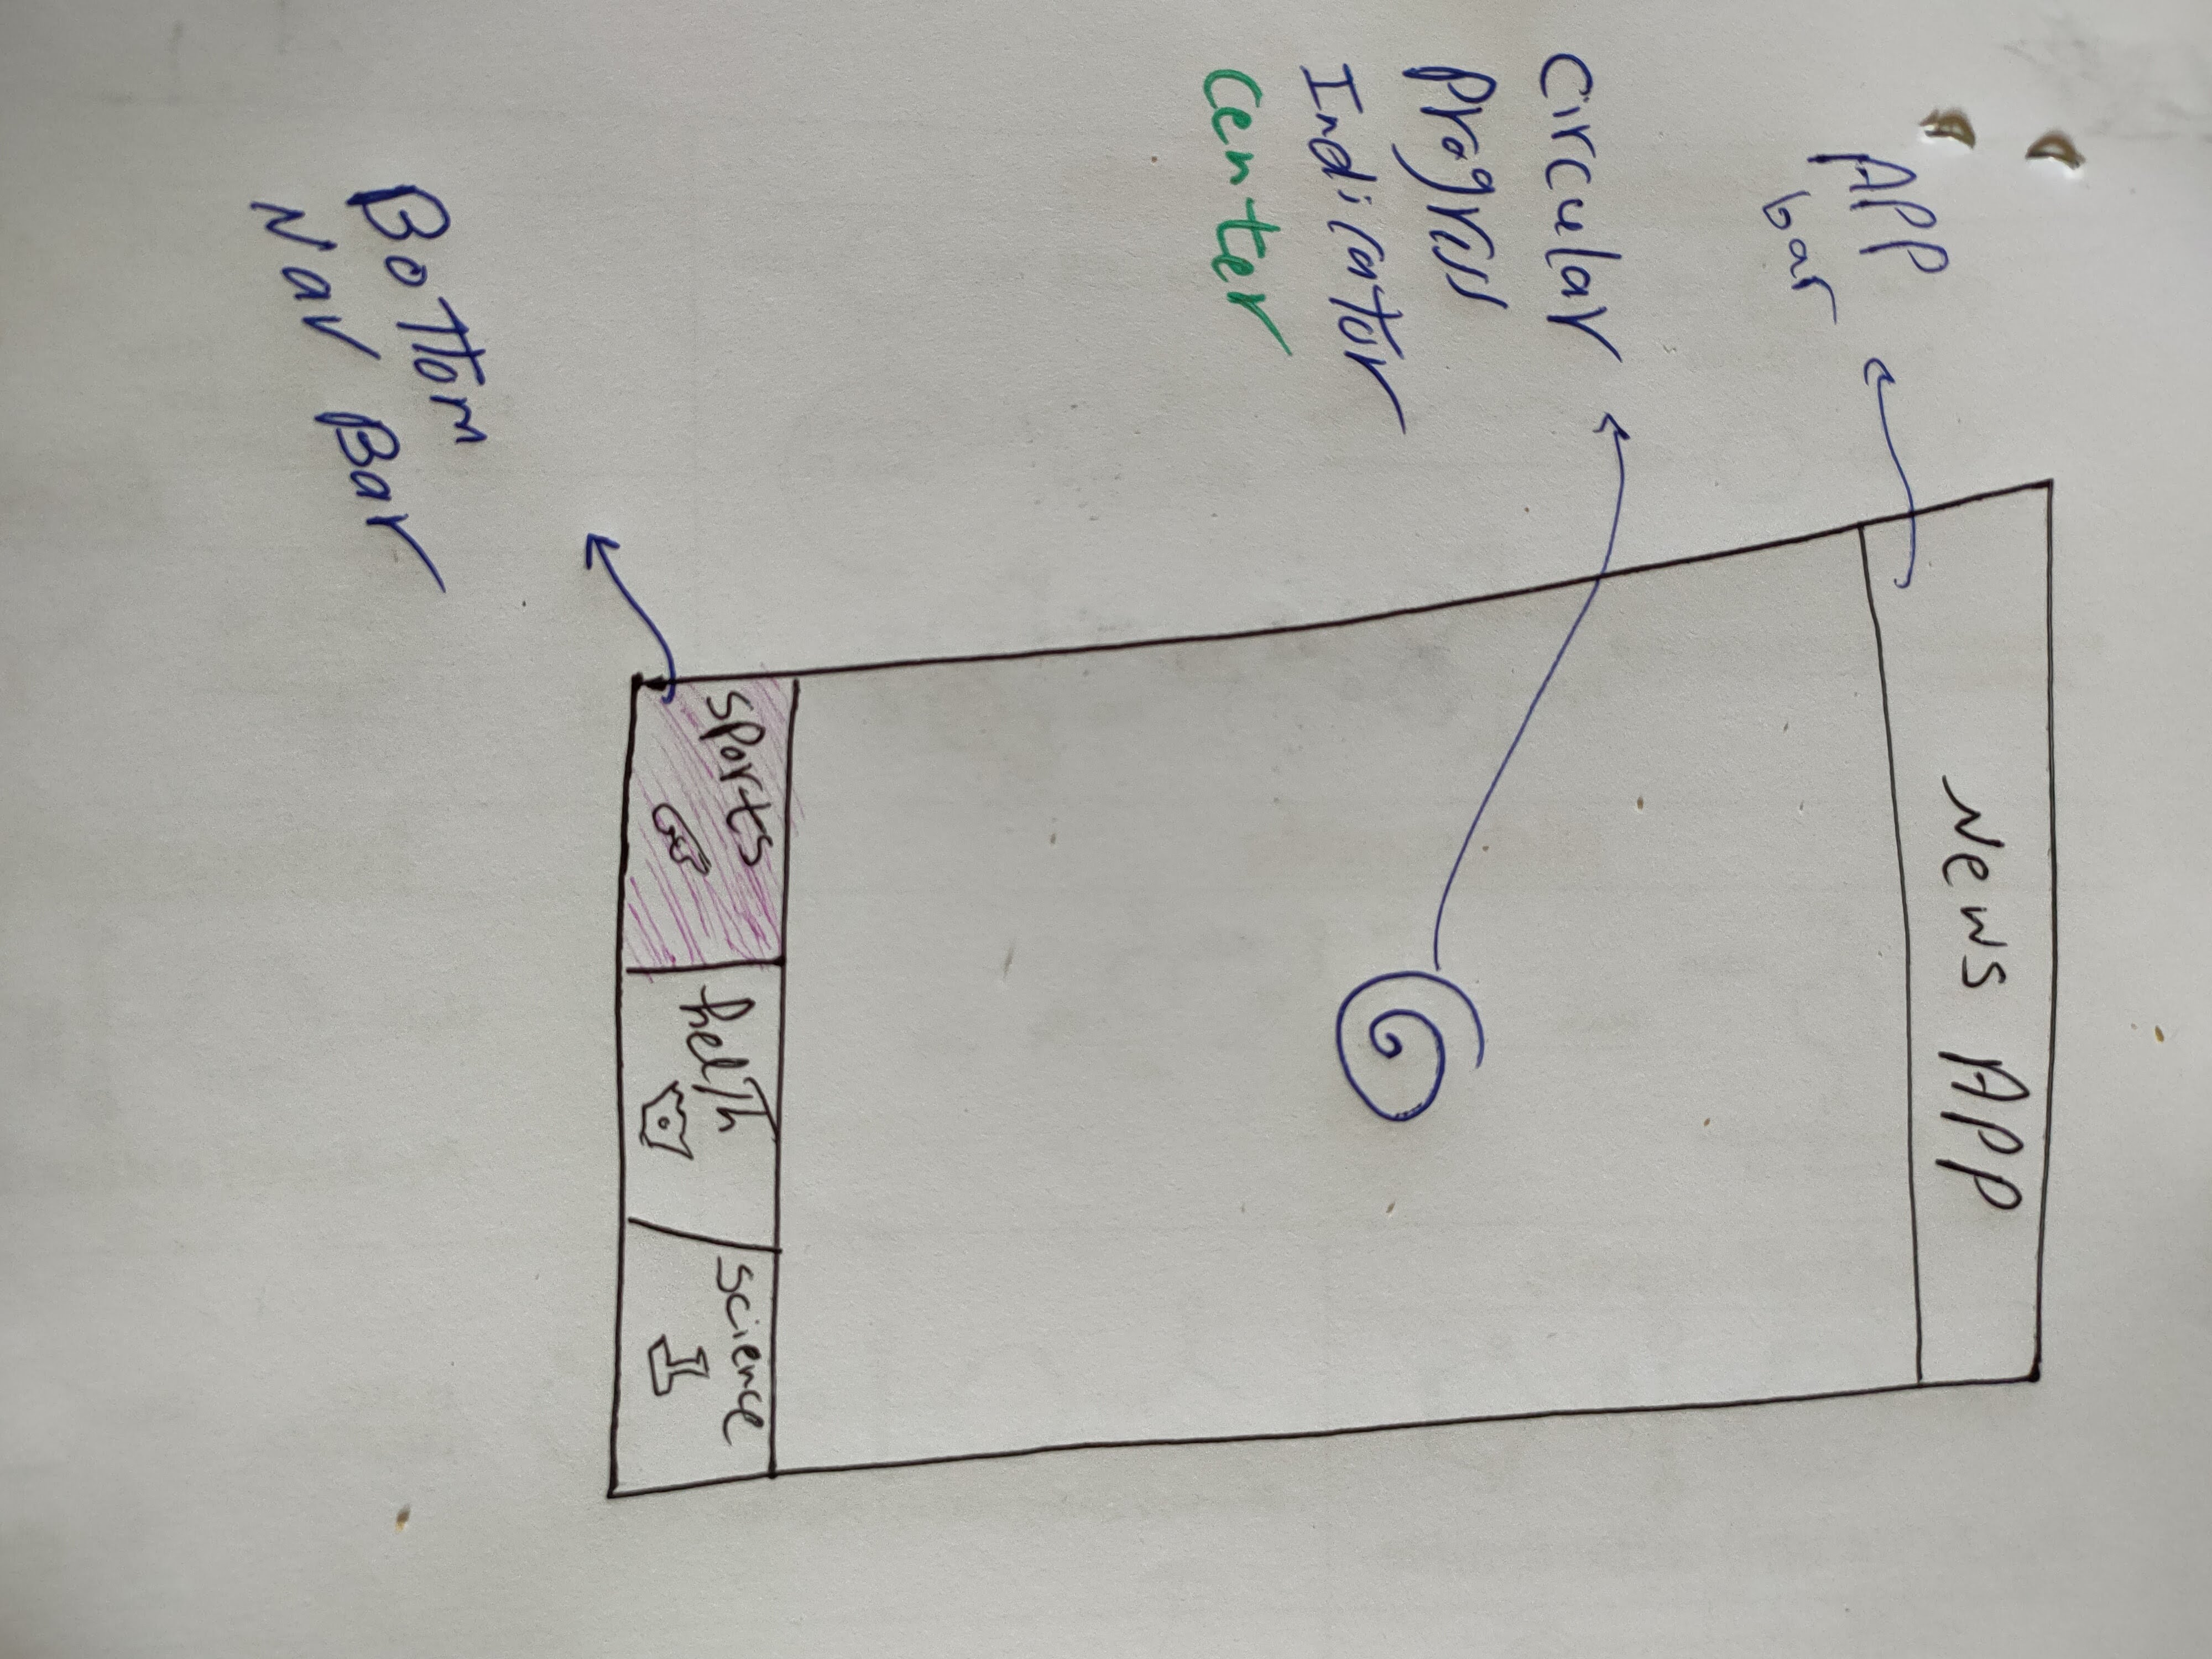 News APP
APP
bar
Circular
Progress
Indicator
Center
sports
helTh
science
BoTTom
Nav Bar